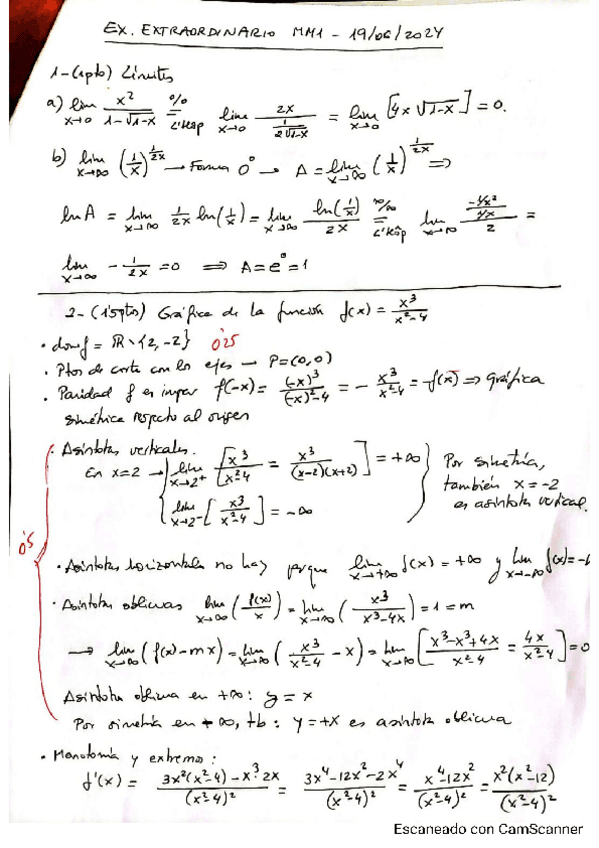 EX. EXTRAORDINARIO MM1 - 19/06/2024
1-(1pto) Límites
a) lim x→0 x²/(1-√(1-x)) = 0/0 L'Hôp lim x→0 2x/(1/(2√(1-x))) = lim x→0 [4x √(1-x)] = 0.
b) lim x→∞ (1/x)^(1/2x) → Forma 0⁰ → A = lim x→∞ (1/x)^(1/2x) ⇒
ln A = lim x→∞ 1/2x ln(1/x) = lim x→∞ ln(1/x)/2x = ∞/∞ L'Hôp lim x→∞ (-1/x²/1/x)/2 =
lim x→∞ -1/2x = 0 ⇒ A = e⁰ = 1
2-(1'5ptos) Gráfica de la función f(x) = x³/(x²-4)
· dom f = ℝ \ {2, -2} 0'25
· Ptos de corte con los ejes → P=(0,0)
· Paridad f es impar f(-x) = (-x)³/((-x)²-4) = - x³/(x²-4) = -f(x) ⇒ Gráfica
simétrica respecto al origen
· Asíntotas verticales.
En x=2 → { lim x→2⁺ [x³/(x²-4) = x³/((x-2)(x+2))] = +∞
lim x→2⁻ [x³/(x²-4)] = -∞
} Por simetría,
también x = -2
es asíntota vertical.
0'5
· Asíntotas horizontales no hay porque lim x→+∞ f(x) = +∞ y lim x→-∞ f(x) = -
· Asíntotas oblicuas lim x→∞ (f(x)/x) = lim x→∞ (x³/(x³-4x)) = 1 = m
→ lim x→∞ (f(x)-mx) = lim x→∞ (x³/(x²-4) - x) = lim x→∞ [(x³-x³+4x)/(x²-4) = 4x/(x²-4)] = 0
Asíntota oblicua en +∞: y = x
Por simetría en -∞, tb: y = +x es asíntota oblicua
· Monotonía y extremos:
f'(x) = (3x²(x²-4) - x³·2x)/(x²-4)² = (3x⁴-12x²-2x⁴)/(x²-4)² = (x⁴-12x²)/(x²-4)² = x²(x²-12)/(x²-4)²
Escaneado con CamScanner